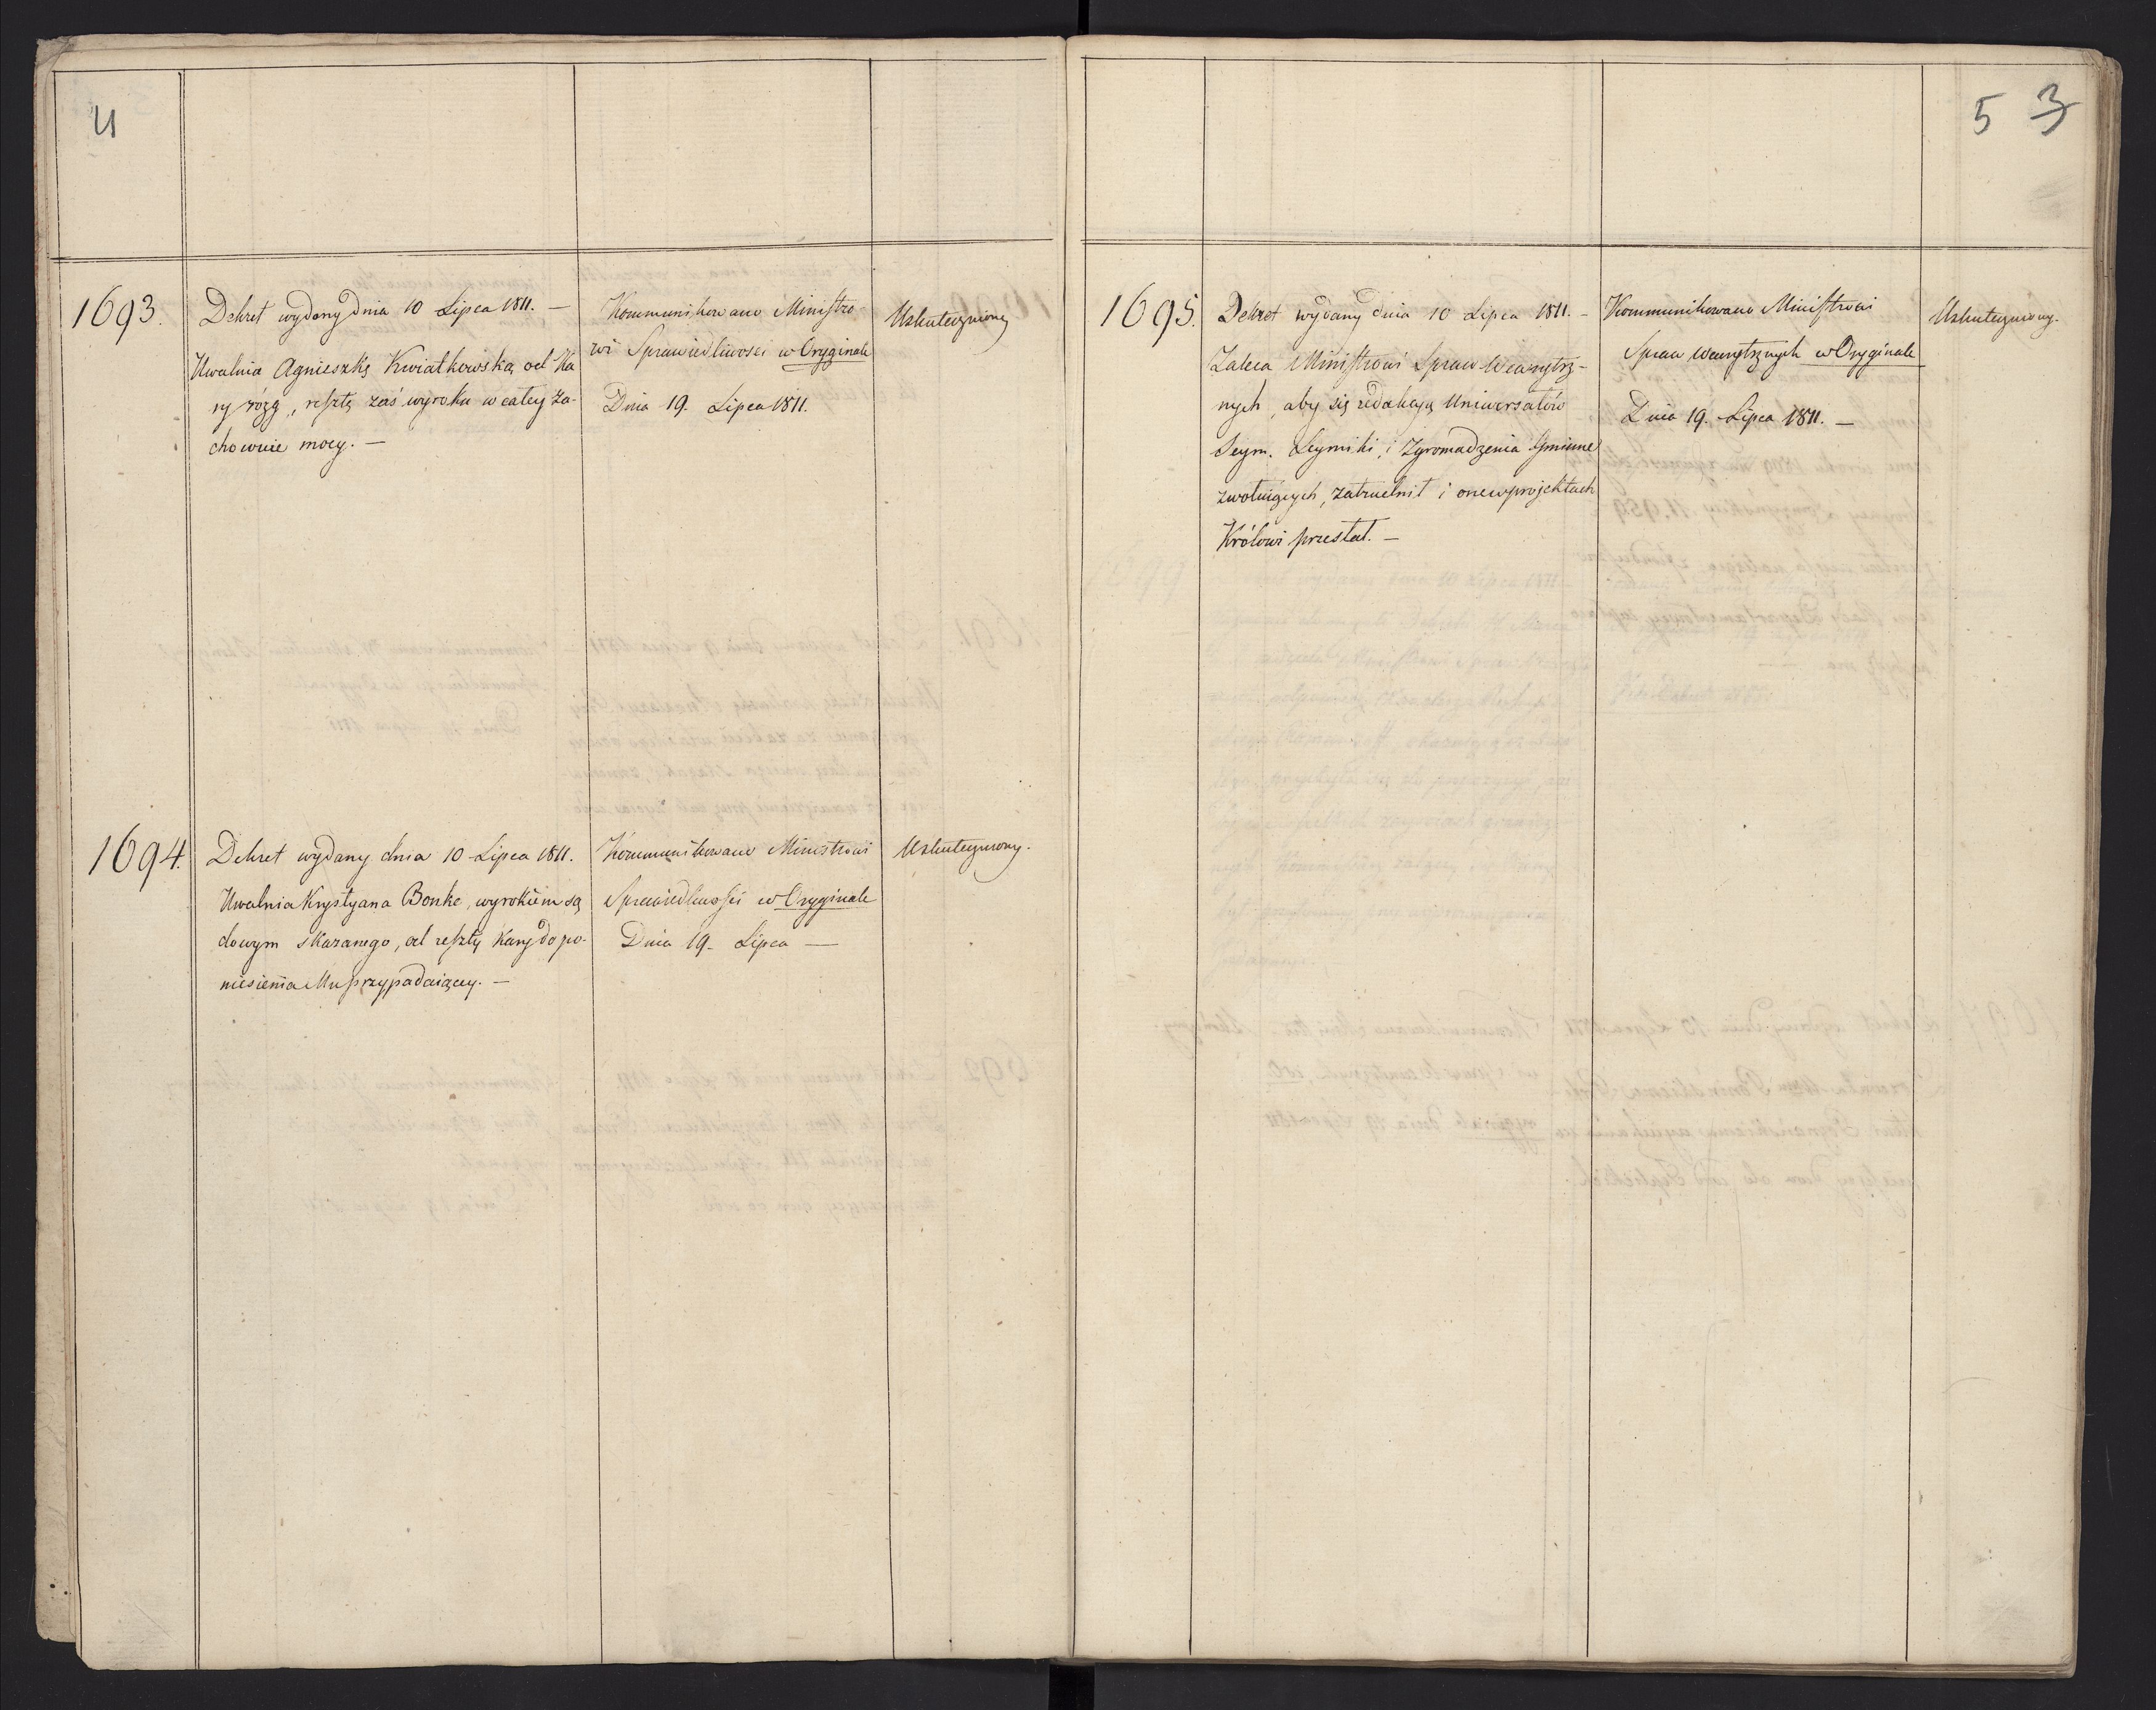 4
1693.
Dekret wydany dnia 10 Lipca 1811. —
Uwalnia Agnieszkę Kwiatkowską od Ka
ry rózg, resztę zaś wyroku w całey za-
chowuie mocy. —
Kommunikowano Ministro-
wi Sprawiedliwosci w Oryginale
Dnia 19. Lipca 1811.
Uskuteczniony
1694.
Dekret wydany dnia 10 Lipca 1811.
Uwalnia Krystyana Bonke, wyrokiem są
dowym skazanego, od reszty Kary do po-
niesienia Mu przypadaiącey. —
Kommunikowano Ministrowi
Sprawiedliwości w Oryginale
Dnia 19. Lipca —
Uskuteczniony.
5 3
1695.
Dekret wydany dnia 10 Lipca 1811. —
Zaleca Ministrowi Spraw Wewnętrz-
nych, aby się redakcyą Uniwersałów
Seym. Seymiki, i Zgromadzenia Gminne
zwołuiących, zatrudnił i one w projektach
Królowi przesłał. —
Kommunikowano Ministrowi
Spraw Wewnętrznych w Oryginale
Dnia 19. Lipca 1811. —
Uskuteczniony.